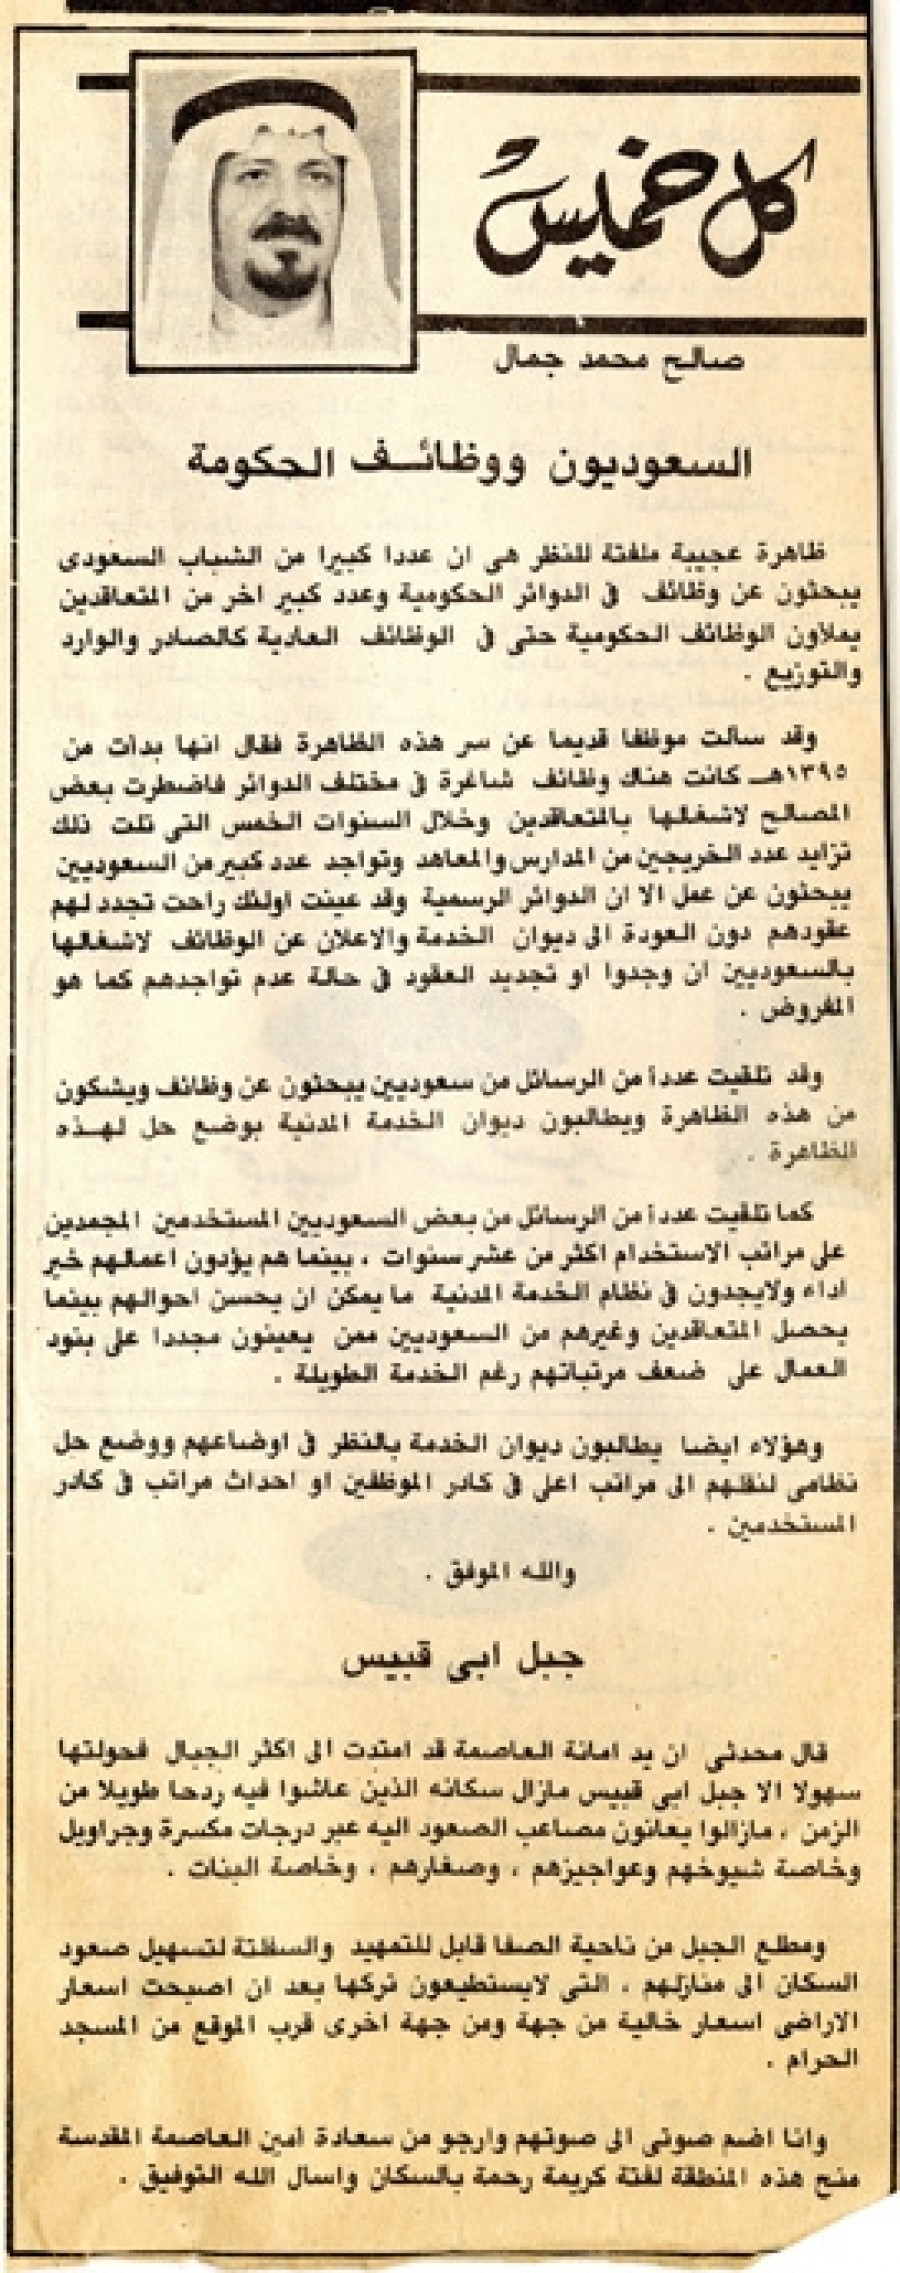 كل خميس
صالح محمد جمال
السعوديون ووظائف الحكومة
ظاهرة عجيبة ملفتة للنظر هى ان عددا كبيرا من الشباب السعودى
يبحثون عن وظائف فى الدوائر الحكومية وعدد كبير اخر من المتعاقدين
يملاون الوظائف الحكومية حتى فى الوظائف العادية كالصادر والوارد
والتوزيع .
وقد سألت موظفا قديما عن سر هذه الظاهرة فقال انها بدأت من
١٣٩٥هـ كانت هناك وظائف شاغرة فى مختلف الدوائر فاضطرت بعض
المصالح لاشغالها بالمتعاقدين وخلال السنوات الخمس التى تلت ذلك
تزايد عدد الخريجين من المدارس والمعاهد وتواجد عدد كبير من السعوديين
يبحثون عن عمل الا ان الدوائر الرسمية وقد عينت اولئك راحت تجدد لهم
عقودهم دون العودة الى ديوان الخدمة والاعلان عن الوظائف لاشغالها
بالسعوديين ان وجدوا او تجديد العقود فى حالة عدم تواجدهم كما هو
المفروض .
وقد تلقيت عدداً من الرسائل من سعوديين يبحثون عن وظائف ويشكون
من هذه الظاهرة ويطالبون ديوان الخدمة المدنية بوضع حل لهـذه
الظاهرة .
كما تلقيت عدداً من الرسائل من بعض السعوديين المستخدمين المجمدين
على مراتب الاستخدام اكثر من عشر سنوات ، بينما هم يؤدون اعمالهم خير
اداء ولايجدون فى نظام الخدمة المدنية ما يمكن ان يحسن احوالهم بينما
يحصل المتعاقدين وغيرهم من السعوديين ممن يعينون مجددا على بنود
العمال على ضعف مرتباتهم رغم الخدمة الطويلة .
وهؤلاء ايضا يطالبون ديوان الخدمة بالنظر فى اوضاعهم ووضع حل
نظامى لنقلهم الى مراتب اعلى فى كادر الموظفين او احداث مراتب فى كادر
المستخدمين .
والله الموفق .
جبل ابى قبيس
قال محدثى ان يد امانة العاصمة قد امتدت الى اكثر الجبال فحولتها
سهولا الا جبل ابى قبيس مازال سكانه الذين عاشوا فيه ردحا طويلا من
الزمن ، مازالوا يعانون مصاعب الصعود اليه عبر درجات مكسرة وجراويل
وخاصة شيوخهم وعواجيزهم ، وصغارهم ، وخاصة البنات .
ومطلع الجبل من ناحية الصفا قابل للتمهيد والسفلتة لتسهيل صعود
السكان الى منازلهم ، التى لايستطيعون تركها بعد ان اصبحت اسعار
الاراضى اسعار خالية من جهة ومن جهة اخرى قرب الموقع من المسجد
الحرام .
وانا اضم صوتى الى صوتهم وارجو من سعادة امين العاصمة المقدسة
منح هذه المنطقة لفتة كريمة رحمة بالسكان واسال الله التوفيق .